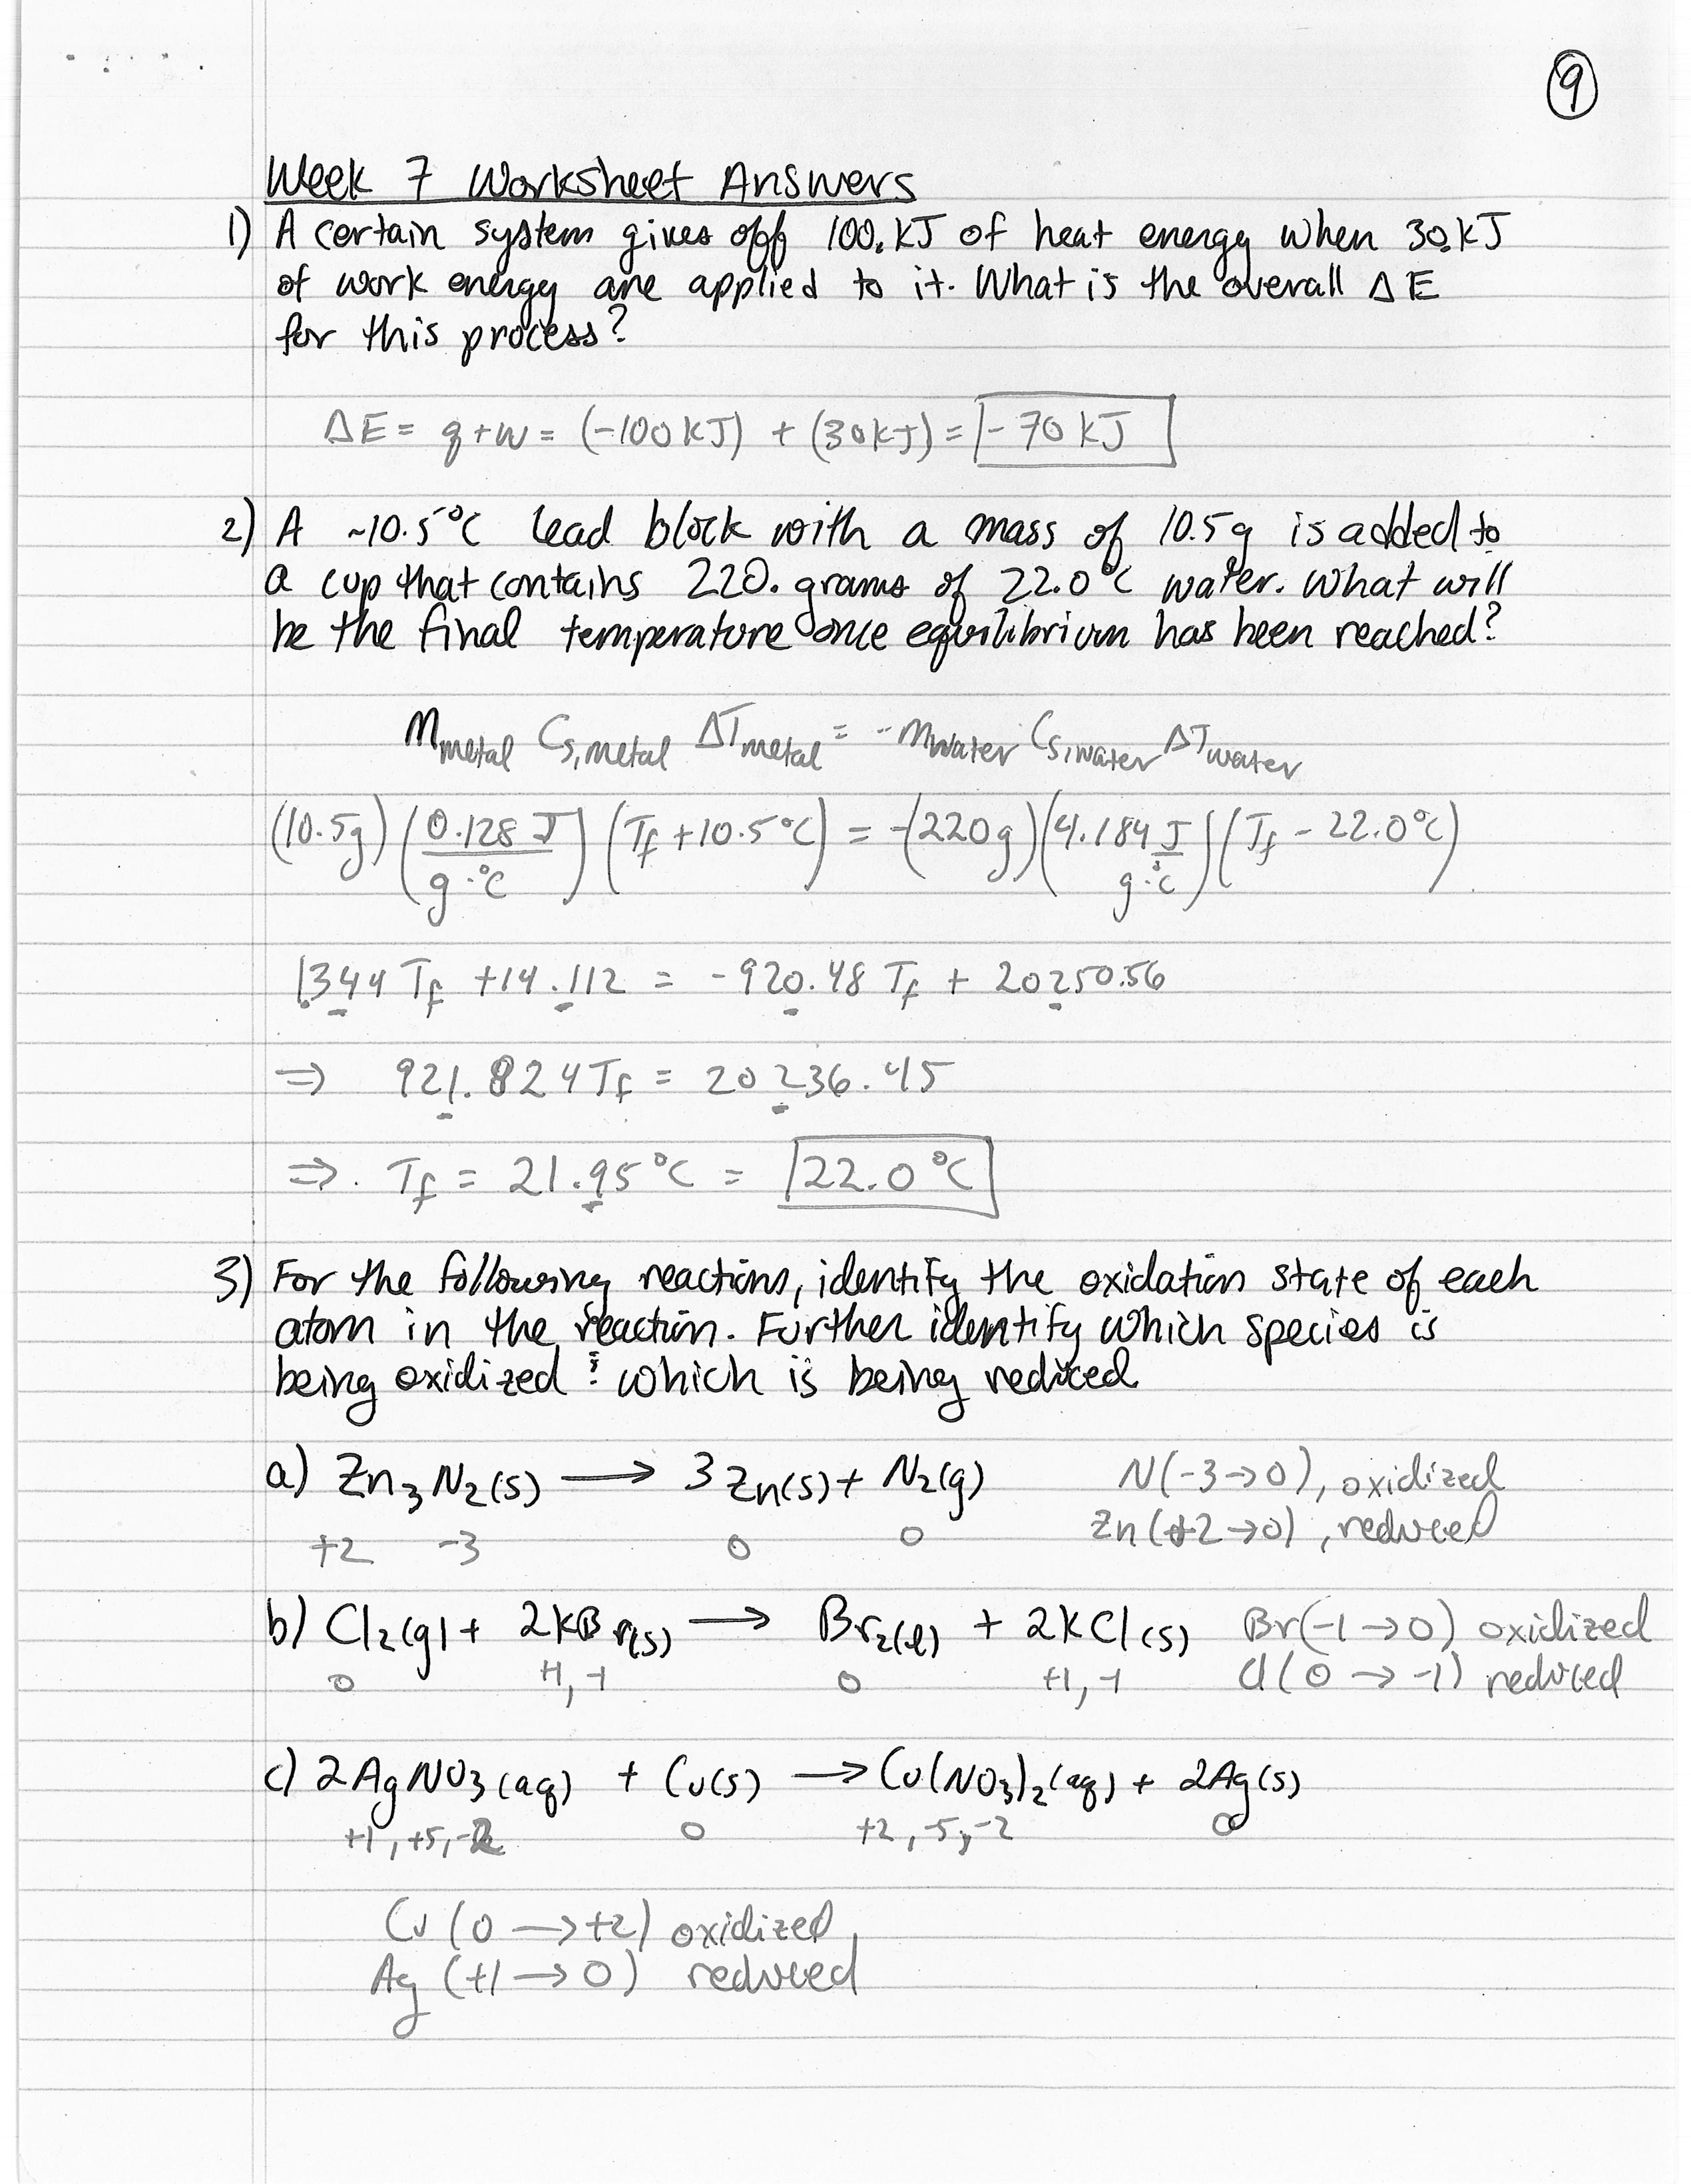 9
Week 7 Worksheet Answers
1) A certain system gives off 100. kJ of heat energy when 30. kJ
of work energy are applied to it. What is the overall ΔE
for this process?
ΔE = q + w = (-100 kJ) + (30 kJ) = -70 kJ
2) A ~10.5°C lead block with a mass of 10.5 g is added to
a cup that contains 220. grams of 22.0°C water. What will
be the final temperature once equilibrium has been reached?
m_metal C_s,metal ΔT_metal = -m_water C_s,water ΔT_water
(10.5g) (0.128 J / g·°C) (T_f + 10.5°C) = -(220g) (4.184 J / g·°C) (T_f - 22.0°C)
1.344 T_f + 14.112 = -920.48 T_f + 20250.56
⇒ 921.824 T_f = 20236.45
⇒ T_f = 21.95°C = 22.0°C
3) For the following reactions, identify the oxidation state of each
atom in the reaction. Further identify which species is
being oxidized & which is being reduced
a) Zn₃N₂(s) → 3Zn(s) + N₂(g) N(-3→0), oxidized
+2 -3 0 0 Zn(+2→0), reduced
b) Cl₂(g) + 2KBr(s) → Br₂(l) + 2KCl(s) Br(-1→0) oxidized
0 +1, -1 0 +1, -1 Cl(0→-1) reduced
c) 2AgNO₃(aq) + Cu(s) → Cu(NO₃)₂(aq) + 2Ag(s)
+1, +5, -2 0 +2, -5, -2 0
Cu (0 → +2) oxidized
Ag (+1 → 0) reduced